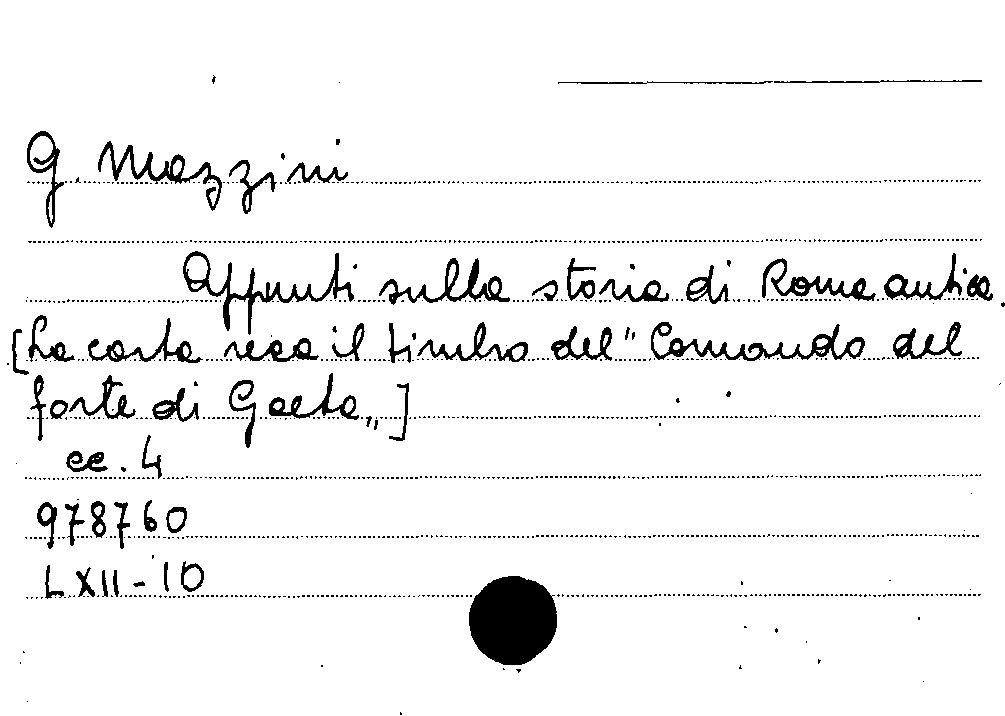 G. Mazzini
Appunti sulla storia di Roma antica.
[La carta reca il timbro del "Comando del
forte di Gaeta„]
cc. 4
978760
LXII-10